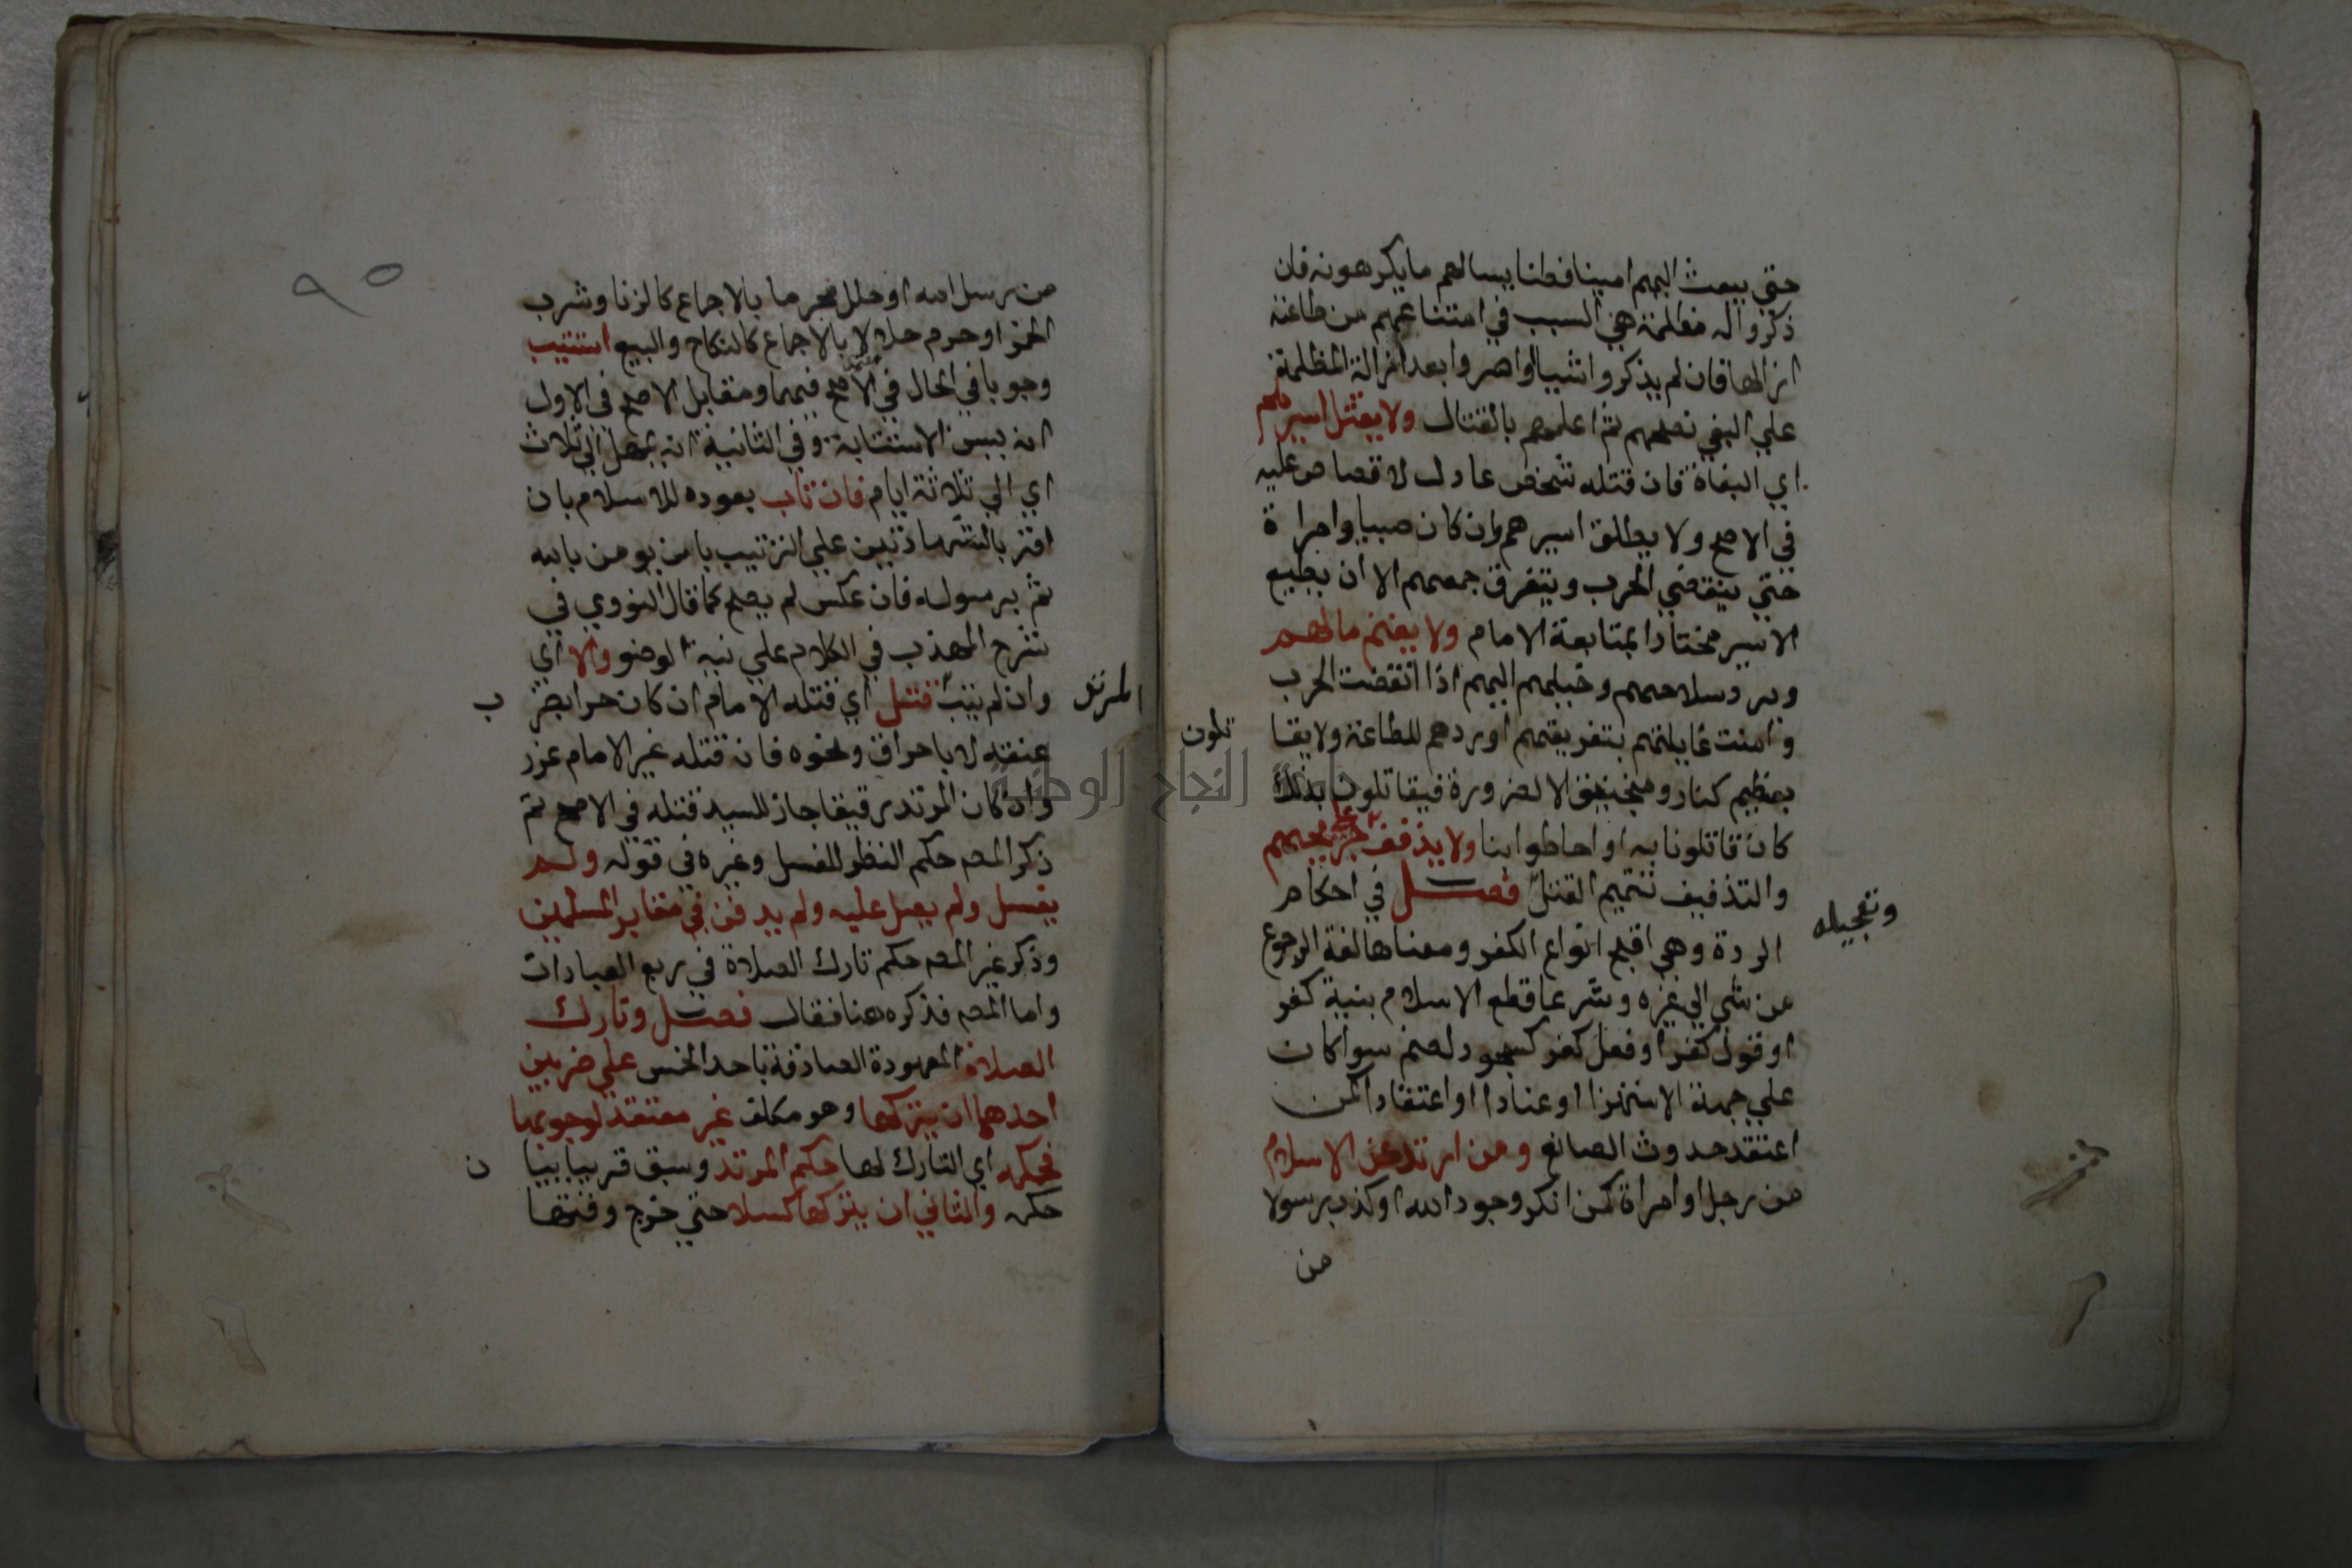 حتي يبعث اليهم امينا فطنا يسالهم ما يكرهونه فان
ذكروا له مظلمة هي السبب في امتناعهم من طاعته
ازالها فان لم يذكروا شيا او اصروا بعد ازالة المظلمة
علي البغي نصحهم ثم اعلمهم بالقتال ولا يقتل اسيرهم
اي البغاة فان قتله شخص عادل لا قصاص عليه
في الاصح ولا يطلق اسيرهم وان كان صبيا وامراة
حتي ينقضي الحرب ويتفرق جمعهم الا ان يطيع
الاسير مختارا بمتابعة الامام ولا يغنم مالهم
ويرد وسلاحهم وخيلهم اليهم اذا انقضت الحرب
وامنت غايلتهم بتفريقهم او بردهم للطاعة ولا يقا
تلون
بعظيم كنار ومنجنيق الا لضرورة فيقاتلون بذلك
كان قاتلونا به او احاطوا بنا ولا يذفف علي جريحهم
والتذفيف تتميم القتل فصل في احكام
وتعجيله
الردة وهي اقبح انواع الكفر ومعناها لغة الرجوع
عن شي الي غيره وشرعا قطع الاسلام بنية كفر
او قول كفر او فعل كفر كسجود لصنم سوا كان
علي جهة الاستهزا او عنادا او اعتقادا كمن
اعتقد حدوث الصانع ومن ارتد عن الاسلام
من رجل او امراة كمن انكر وجود الله او كذب رسولا
من
٩٥
من رسل الله او حلل محرما بالاجماع كالزنا وشرب
الخمر او حرم حلالا بالاجماع كالنكاح والبيع استتيب
وجوبا في الحال في الاصح فيهما ومقابل الاصح في الاول
انه يسن الاستتابة وفي الثانية انه يمهل الي ثلاث
اي الي ثلاثة ايام فان تاب بعوده للاسلام بان
اقر بالشهادتين علي الترتيب بان يومن بالله
ثم برسوله فان عكس لم يصح كما قال النووي في
شرح المهذب في الكلام علي نية الوضو والا اي
وان لم يتب المرتد قتل اي قتله الامام ان كان حرا بضر
ب
عنقه لا باحراق ونحوه فان قتله غير الامام عزر
وان كان المرتد رقيقا جاز للسيد قتله في الاصح ثم
ذكر المص حكم النظر للغسل وغيره في قوله ولم
يغسل ولم يصل عليه ولم يدفن في مقابر المسلمين
وذكر غير المص حكم تارك الصلاة في ربع العبادات
واما المص فذكره هنا فقال فصل وتارك
الصلاة المعهودة الصادقة باحد الخمس علي ضربين
احدهما ان يتركها وهو مكلف غير معتقد لوجوبها
فحكمه اي التارك لها حكم المرتد وسبق قريبا بيا
ن
حكمه والثاني ان يتركها كسلا حتي خرج وقتها
جامعة النجاح الوطنية